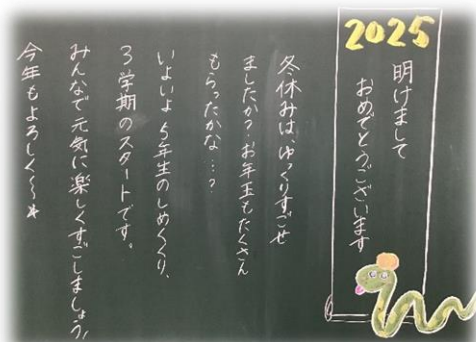 2025
明けまして
おめでとうございます
冬休みは、ゆっくりすごせ
ましたか？お年玉もたくさん
もらったかな…？
いよいよ5年生のしめくくり、
3学期のスタートです。
みんなで元気に楽しくすごしましょう！
今年もよろしく〜★